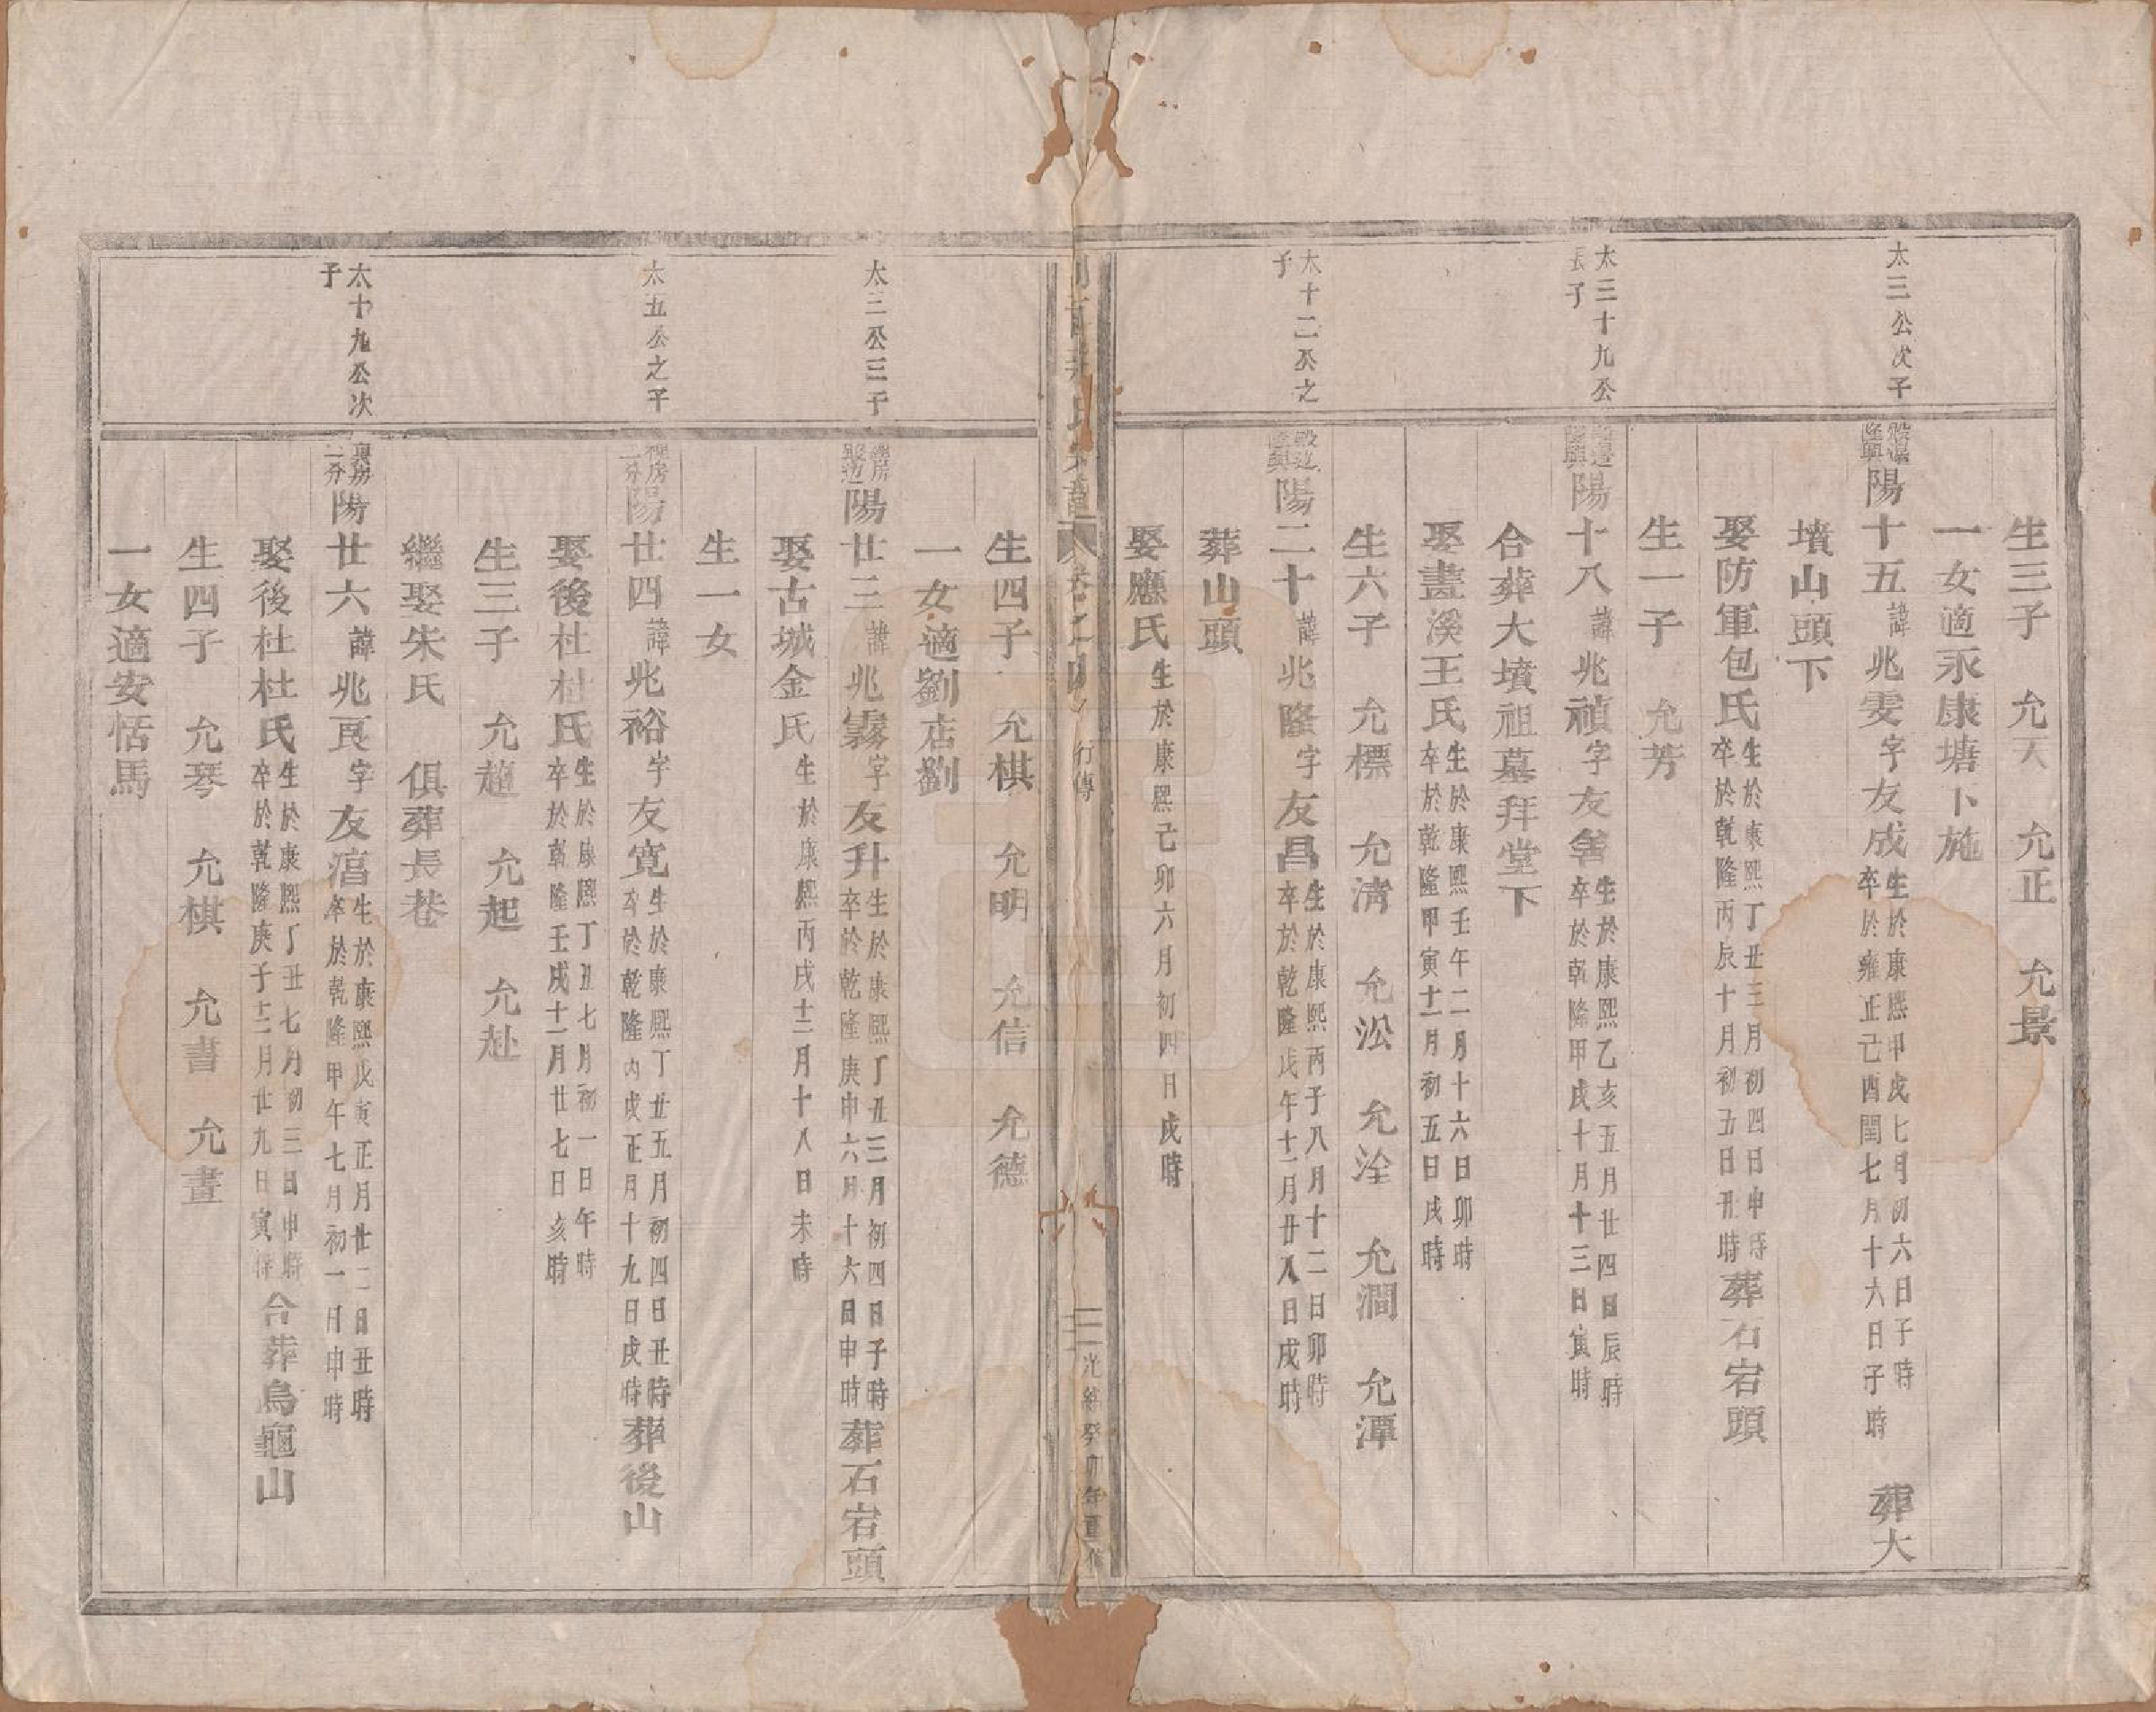 生三子 允天 允正 允景
一女適永康塘下施
太三公次子
陽十五諱兆雯字友成生於康熙甲戌七月初六日子時卒於雍正己酉閏七月十六日子時 葬大
墳山頭下
娶防軍包氏生於康熙丁丑三月初四日申時卒於乾隆丙辰十月初五日丑時葬石宕頭
生一子 允芳
太三十九公長子
陽十八諱兆禎字友善生於康熙乙亥五月廿四日辰時卒於乾隆甲戌十月十三日寅時
合葬大墳祖墓拜堂下
娶畫溪王氏生於康熙壬午二月十六日卯時卒於乾隆甲寅十一月初五日戌時
生六子 允標 允清 允㳂 允淦 允澗 允潭
太十二公之子
陽二十諱兆隆字友昌生於康熙丙子八月十二日卯時卒於乾隆戊午十二月廿八日戌時
葬山頭
娶應氏生於康熙己卯六月初四日戌時
卷之四 行傳
光緒癸卯年重修
生四子 允棋 允明 允信 允德
一女適劉店劉
太三公三子
陽廿三諱兆霧字友升生於康熙丁丑三月初四日子時卒於乾隆庚申六月十六日申時葬石宕頭
娶古城金氏生於康熙丙戌十二月十八日未時
生一女
太五公之子
二分陽廿四諱兆裕字友寬生於康熙丁丑五月初四日丑時卒於乾隆丙戌正月十九日戌時葬後山
娶後杜杜氏生於康熙丁丑七月初一日午時卒於乾隆壬戌十一月廿七日亥時
生三子 允趙 允起 允赴
繼娶朱氏 俱葬長巷
太十九公次子
二分陽廿六諱兆良字友富生於康熙戊寅正月廿二日丑時卒於乾隆甲午七月初一日申時
娶後杜杜氏生於康熙丁丑七月初三日申時卒於乾隆庚子十二月廿九日寅時合葬烏龜山
生四子 允琴 允棋 允書 允畫
一女適安恬馬